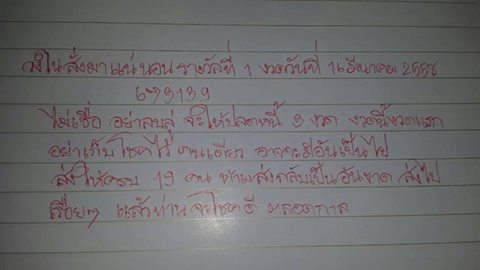 สั่งมาแน่นอน รางวัลที่ 1 งวดวันที่ 16 มีนาคม 2558
673139
ไม่เชื่อ อย่าลบหลู่ จะให้ปลดหนี้ 3 งวด งวดนี้งวดแรก
อย่าเก็บโชคไว้ คนเดียว อาจจะมีอันเป็นไป
ส่งให้ครบ 19 คน ห้ามส่งกลับเป็นอันขาด ส่งไป
เรื่อยๆ แล้วท่านจะโชคดี ตลอดกาล